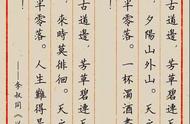 古道邊，芳草碧連天
夕陽山外山。天之
半零落。一杯濁酒盡
古道邊，芳草碧連天
來時莫徘徊。天之
半零落。人生難得是
——李叔同《